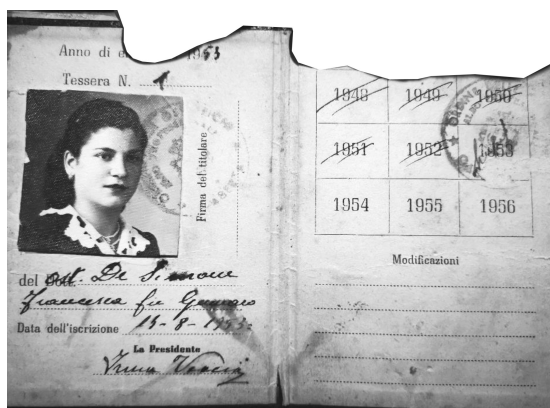 Anno di e 1953
Tessera N. 1
Firma del titolare
del Dott. De Simone
Francesca fu Gennaro
Data dell'iscrizione 15-8-1953
La Presidente
1948 1949 1950
1951 1952 1953
1954 1955 1956
Modificazioni